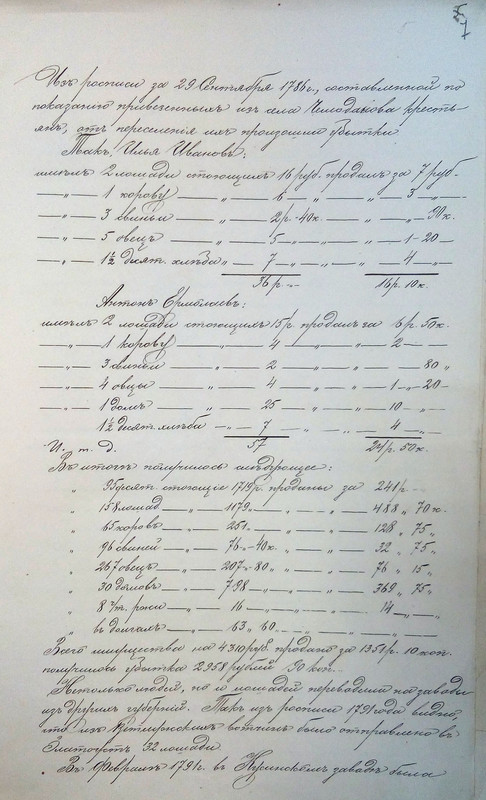 7
Изъ росписи за 29 Сентября 1786г., составленной по
показанию привезенныхъ изъ села Чемоданова кресть-
янъ, отъ переселенiя ихъ произошли убытки
Такъ, Илья Ивановъ:
имѣлъ 2 лошади стоющихъ 16 руб. продалъ за 7 руб.
—„— 1 корову —„— 6 „ — „ — 3 —„—
—„— 3 свиньи —„— 2р.-40к. —„— „ — 90к.
—„— 5 овецъ —„— 5 —„— „ — 1-20 —
—„— 1½ десят. хлѣба —„— 7 —„— 4 —„—
36 р. -- 16р. 10к.
Антонъ Ермолаевъ:
имѣлъ 2 лошади стоющихъ 15р. продалъ за 6р. 50к.
—„— 1 корову —„— 4 —„— 2 —„—
—„— 3 свиньи —„— 2 —„— 80 „
—„— 4 овцы —„— 4 —„— 1 -„- 20 -
—„— 1 домъ —„— 25 —„— 10 —„—
1½ десят. хлѣба —„— 7 —„— 4 —„—
И. т. д. 57 24р. 50к.
Въ итогѣ получилось слѣдующее:
„ 95 десят. стоющiе 1719р. проданы за 241р.
„ 158 лошад. —„— 1179 —„— 488 „ 70к.
„ 65 коровъ —„— 251 —„— 128 „ 75 „
„ 96 свиней —„— 76 -„- 40к. „ — 32 „ 75 „
„ 267 овецъ —„— 207 -„- 80 „ — 76 „ 15 „
„ 30 домовъ —„— 798 —„— 369 „ 75 „
„ 8 —„— 16 —„— 14 —„—
„ въ долгахъ —„— 63 „ 60 —„—
Всего имущества на 4310 руб. продано за 1351 р. 10 коп.
получилось убытка 2958 рублей 90 коп.
Не только людей, но и лошадей переводили на заводы
изъ другихъ губернiй. Такъ изъ росписи 1791 года видно,
что изъ вотчинъ было отправлено въ
Златоустъ 32 лошади.
Въ Февралѣ 1791 г. въ Кусинскомъ заводѣ была